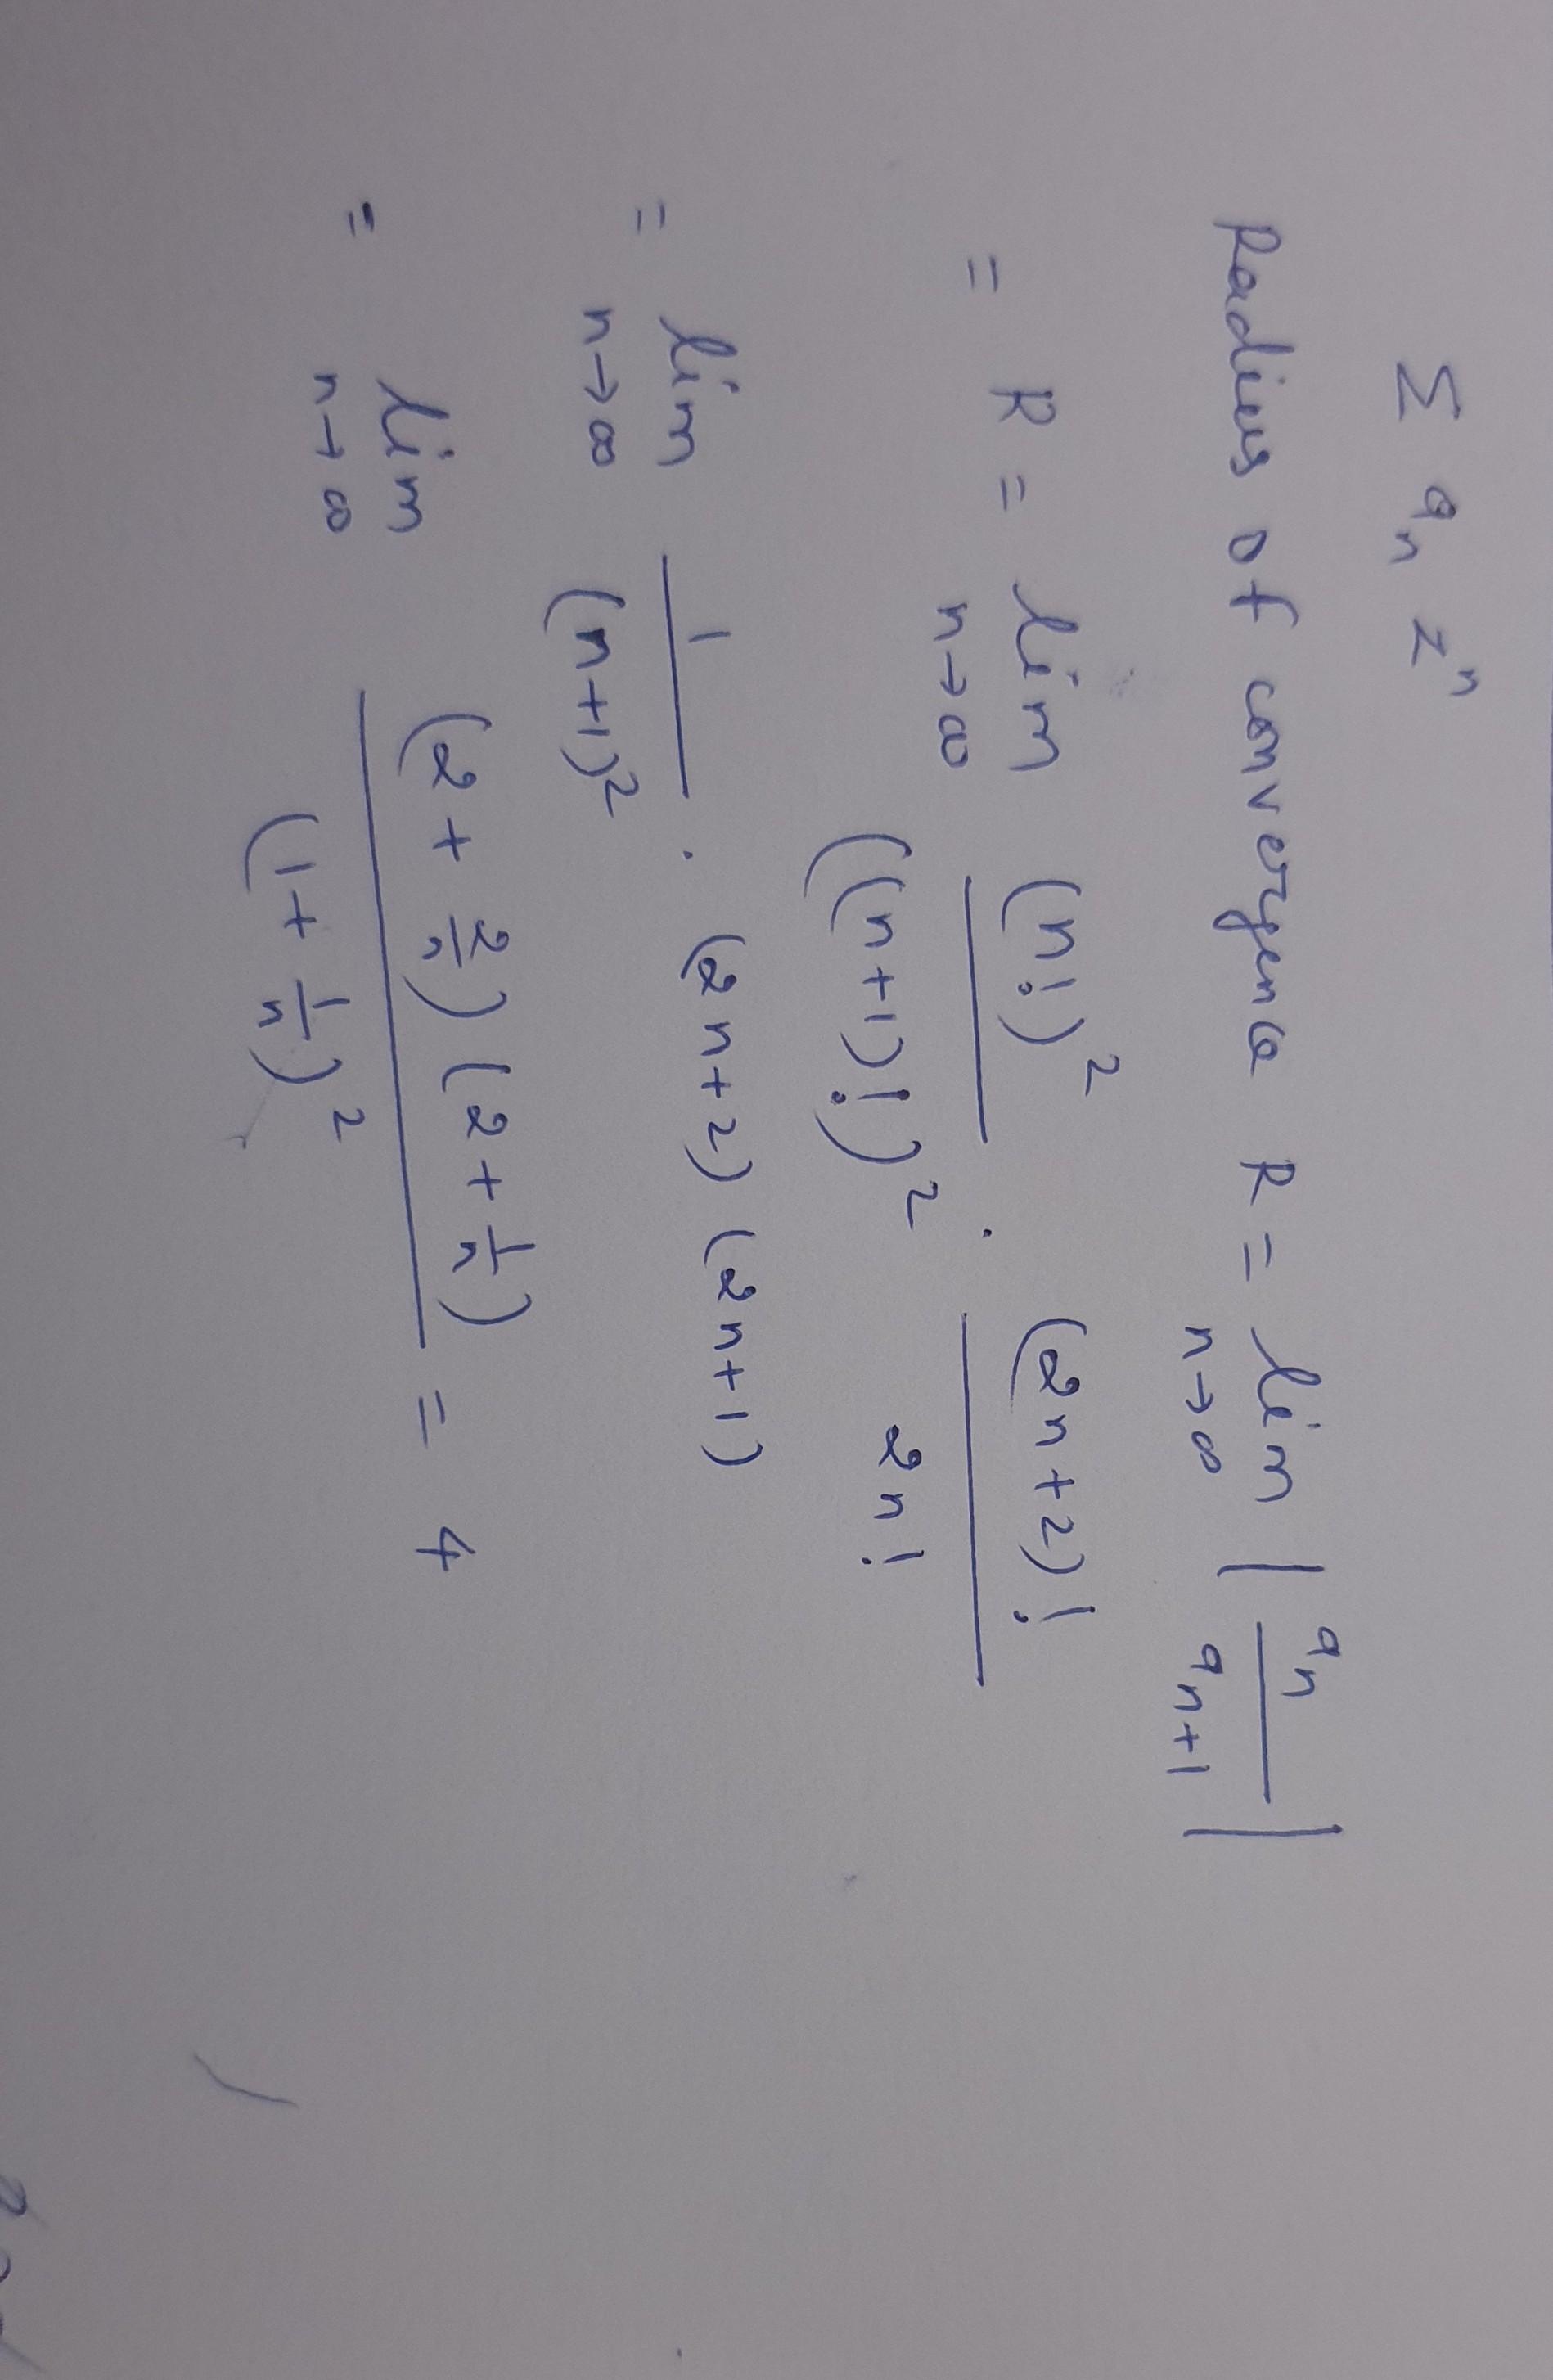 Σ aₙ zⁿ
Radius of convergence R = lim n→∞ | aₙ / aₙ₊₁ |
= R = lim n→∞ (n!)² / ((n+1)!)² · (2n+2)! / 2n!
= lim n→∞ 1 / (n+1)² · (2n+2) (2n+1)
= lim n→∞ (2 + 2/n) (2 + 1/n) / (1 + 1/n)² = 4